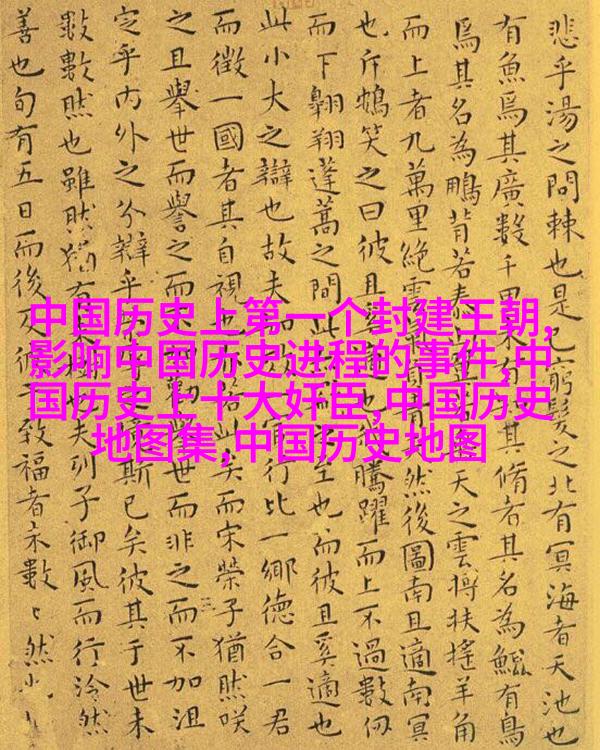 悲乎湯之問棘也是已窮髮之北有冥海者天池也
有魚焉其廣數千里未有其脩者其名為鯤有鳥
焉其名為鵬背若泰山天之雲摶扶搖羊角
而上者九萬里絕雲氣然後圖南且適南冥
也斥鴳笑之曰彼且奚適也騰躍而上不過數仞
而下翱翔蓬蒿之間此至也而彼且奚適也
此小大之辯也故夫知官行比一鄉德合一君
而徵一國者其自視也此矣而宋榮子猶然咲
之且舉世而譽之而不舉世而非之而不加沮
定乎內外之分辯乎境斯已矣彼其于世未
數數然也雖然猶有也夫列子御風而行泠然
善也旬有五日而後反彼于致福者未數々然也
中国历史上第一个封建王朝,
影响中国历史进程的事件,中
国历史上十大奸臣,中国历史
地图集,中国历史地图